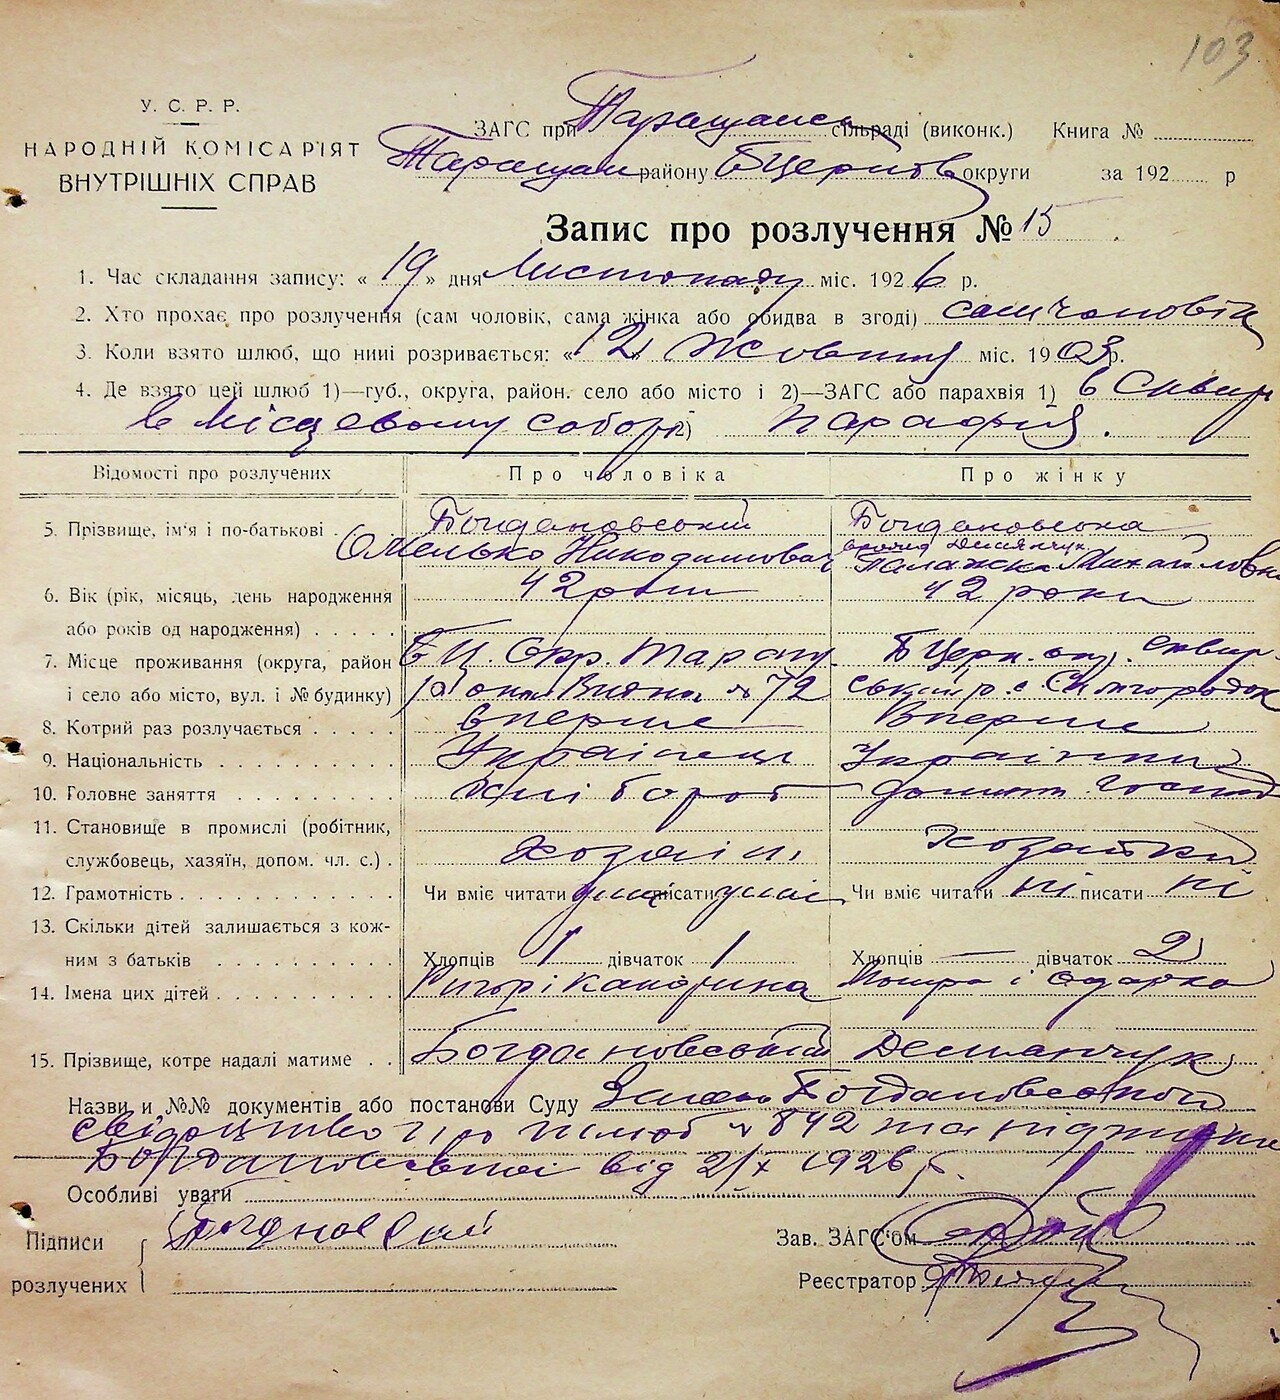 103
У. С. Р. Р.
НАРОДНІЙ КОМІСАРІЯТ
ВНУТРІШНІХ СПРАВ
ЗАГС при Таращанск сільраді (виконк.) Книга №
Таращан району БЦерков округи за 192 р
Запис про розлучення № 15
1. Час складання запису: « 19 » дня Листопаду міс. 1926 р.
2. Хто прохає про розлучення (сам чоловік, сама жінка або обидва в згоді) сам чоловік
3. Коли взято шлюб, що нині розривається: « 12 » Жовтня міс. 1903 р.
4. Де взято цей шлюб 1)—губ., округа, район. село або місто і 2)—ЗАГС або парахвія 1) в Сквир
в місцевому соборі 2) парафія.
Відомості про розлучених Про чоловіка Про жінку
5. Прізвище, ім'я і по-батькові Богдановський Богдановська
Омелько Никодимович Палажка Михайловна
вролид Демянчук
6. Вік (рік, місяць, день народження 42 роки 42 роки
або років од народження)
7. Місце проживання (округа, район БЦ. Окр. Таращ. БЦерк. окр. Сквир-
і село або місто, вул. і № будинку) № 72 ський р.
8. Котрий раз розлучається вперше Вперше
9. Національність Українець Українка
10. Головне заняття Хлібороб домашн. господ
11. Становище в промислі (робітник,
службовець, хазяїн, допом. чл. с.) хозаін хозайка
12. Грамотність Чи вміє читати уміє писати уміє Чи вміє читати ні писати ні
13. Скільки дітей залишається з кож-
ним з батьків Хлопців 1 дівчаток 1 Хлопців — дівчаток 2
14. Імена цих дітей Григорі Катерина і Одарка
15. Прізвище, котре надалі матиме Богдановський Демянчук
Назви и №№ документів або постанови Суду Заява Богдановського
свідоцтво про шлюб № 842 та підписка
Богдановської від 2/X 1926 р.
Особливі уваги
Підписи Богдновский Зав. ЗАГС'ом
розлучених Реєстратор